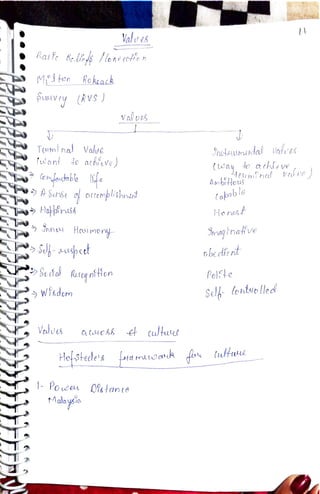 Values
Basic Beliefs / Conviction
Milton Rokeach
Survey (RVS)
Values
Terminal Value
(want to achieve)
Instrumental Values
(way to achieve
terminal value)
→ Comfortable life
→ A sense of accomplishment
→ Happiness
→ Inner Harmony
→ Self-respect
→ Social Recognition
→ Wisdom
Ambitious
Capable
Honest
Imaginative
obedient
Polite
Self-Controlled
Values across of cultures
Hofstede's framework for culture
1- Power Distance
Malaysia